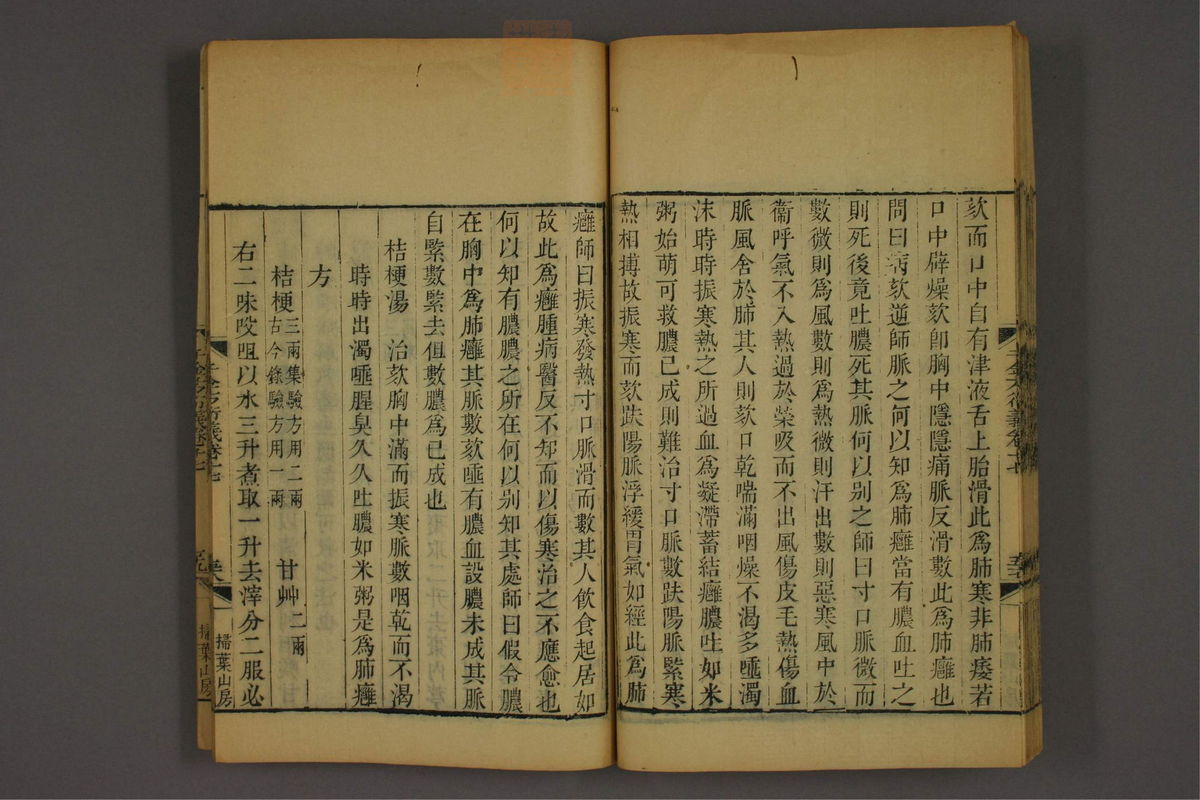 欬而口中自有津液舌上胎滑此爲肺寒非肺痿若
口中辟燥欬卽胸中隱隱痛脈反滑數此爲肺癰也
問曰病欬逆師脈之何以知爲肺癰當有膿血吐之
則死後竟吐膿死其脈何以别之師曰寸口脈微而
數微則爲風數則爲熱微則汗出數則惡寒風中於
衞呼氣不入熱過於榮吸而不出風傷皮毛熱傷血
脈風舍於肺其人則欬口乾喘滿咽燥不渴多唾濁
沫時時振寒熱之所過血爲凝滯蓄結癰膿吐如米
粥始萌可救膿已成則難治寸口脈數趺陽脈緊寒
熱相摶故振寒而欬趺陽脈浮緩胃氣如經此爲肺
癰師曰振寒發熱寸口脈滑而數其人飮食起居如
故此爲癰腫病醫反不知而以傷寒治之不應愈也
何以知有膿膿之所在何以别知其處師曰假令膿
在胸中爲肺癰其脈數欬唾有膿血設膿未成其脈
自緊數緊去但數膿爲已成也
桔梗湯三 治欬胸中滿而振寒脈數咽乾而不渴
時時出濁唾腥臭久久吐膿如米粥是爲肺癰
方
桔梗三兩集驗方用二兩古今錄驗方用一兩 甘艸二兩
右二味㕮咀以水三升煮取一升去滓分二服必
掃葉山房